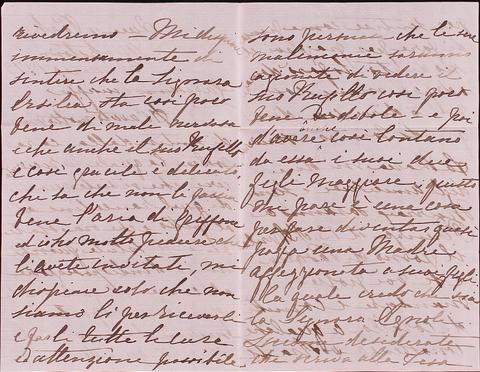 rivedremo — Mi dispiace
immensamente di
sentire che la Signora
Ersilia sta così poco
bene di male nervoso
e che anche il suo
e così gracile è delicato
chi sa che non li
bene l'aria di
ed io ho molto piacere che
li avete invitate, mi
dispiace solo che non
siamo li per riceverli
e farli tutte le cure
e attenzione possibile.
sono che le sue
malinconie saranno
cagionate di vedere il
suo così poco
bene e debole — e poi
d'avere così lontano
da essa i suoi due
figli maggiori, questo
mi pare è una cosa
per fare diventar quasi
pazza una Madre
affezzionata a suoi figli
la quale credo che sia
la Signora
desiderate
alla